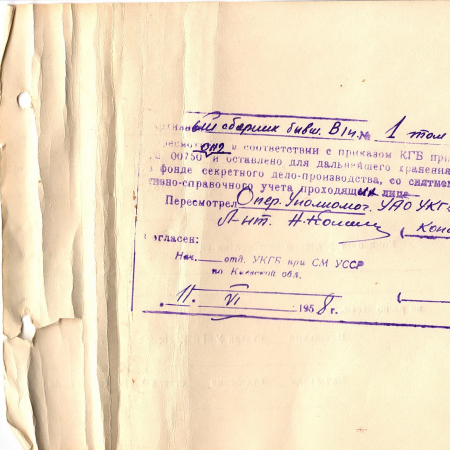 сборник бывш. № 1 том
в соответствии с приказом КГБ при
00750 и оставлено для дальнейшего хранения
в фонде секретного дело-производства, со снятием
тивно-справочного учета проходящих лице
Пересмотрел Опер. Уполномоч. УАО УКГБ
согласен:
Нач. отд. УКГБ при СМ УССР
по Киевской обл.
11. VI 1958 г.